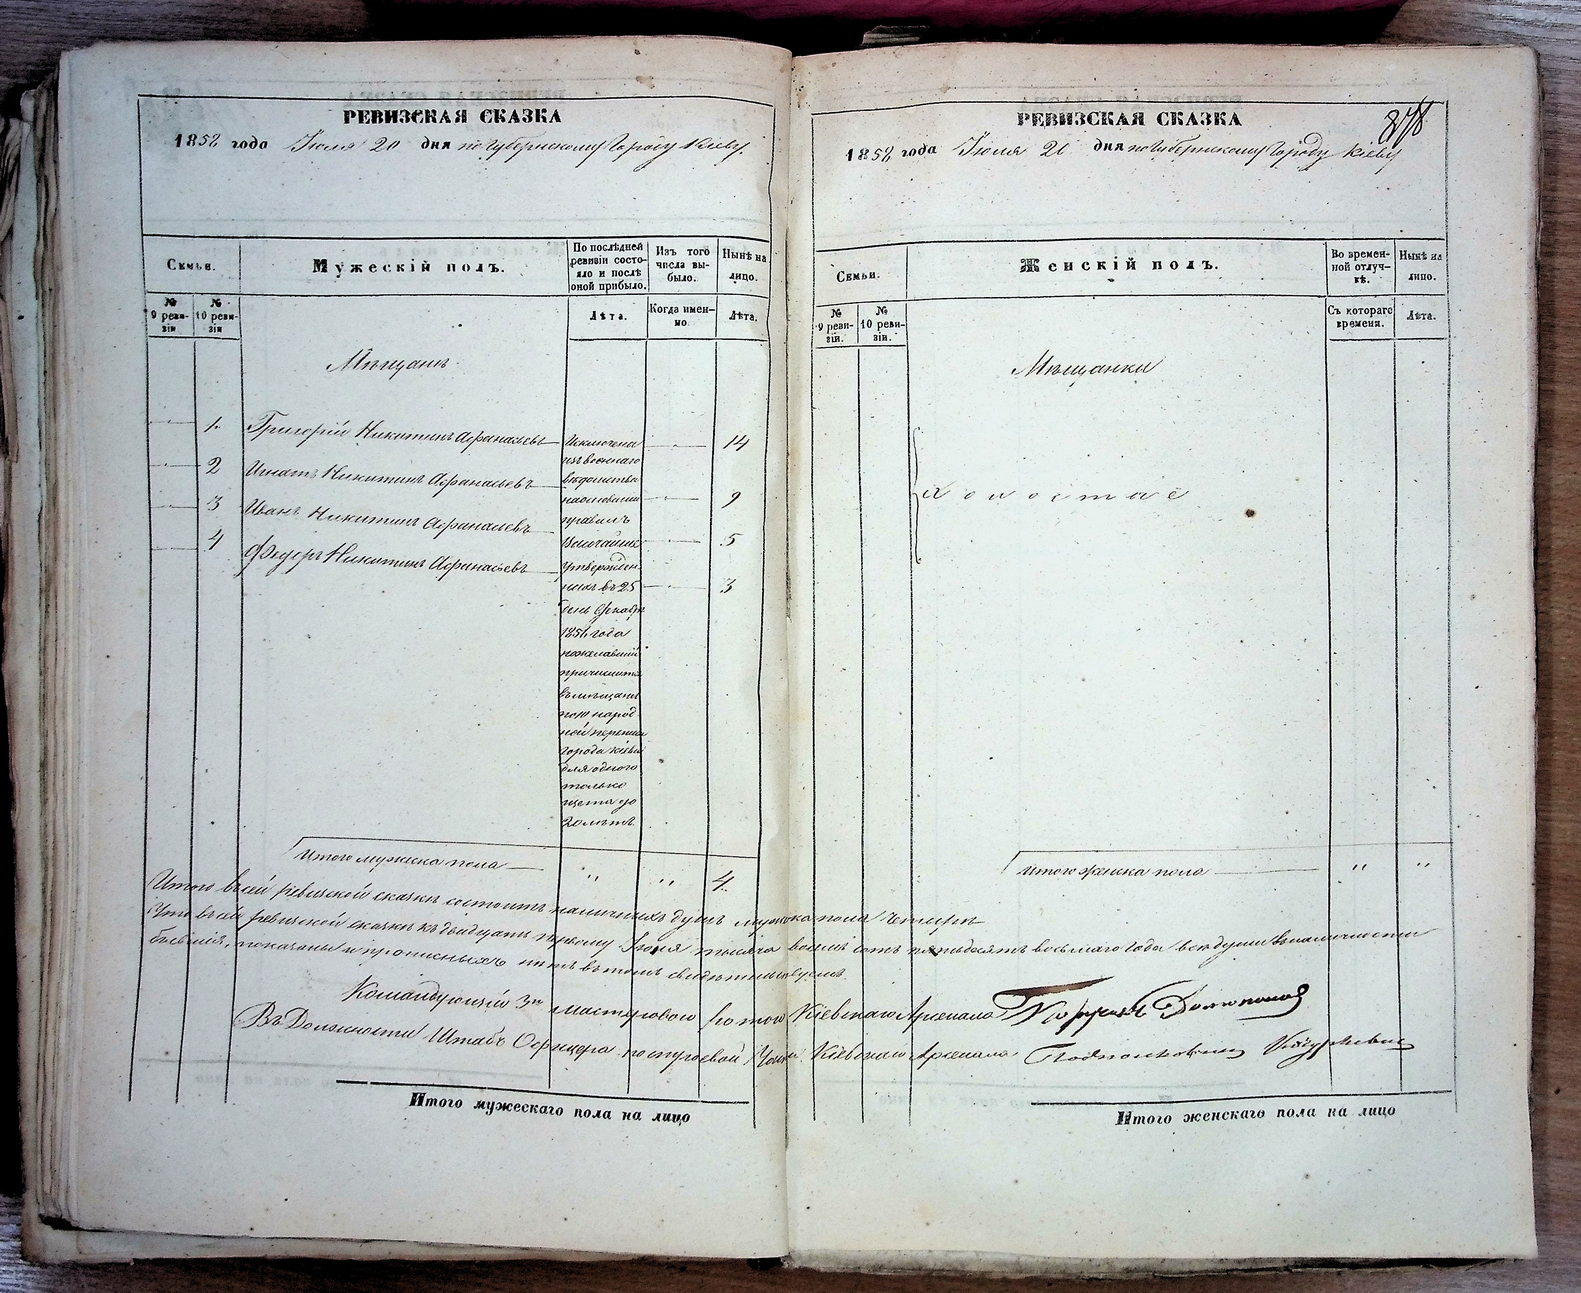 РЕВИЗСКАЯ СКАЗКА
1858 года Іюля 20 дня по Губернскому Городу Кіеву.
Семьи.
Мужескій полъ.
По послѣдней ревизіи состояло и послѣ оной прибыло.
Изъ того числа выбыло.
Нынѣ на лицо.
№ 9 ревизіи
№ 10 ревизіи
Лѣта.
Когда именно.
Лѣта.
Мѣщанъ
1. Григорій Никитинъ Афанасьевъ 14
2 Игнатъ Никитинъ Афанасьевъ 9
3 Иванъ Никитинъ Афанасьевъ 5
4 Федоръ Никитинъ Афанасьевъ 3
Исключена
изъ военнаго
вѣдомства
на основаніи
правилъ
Высочайше
утвержден
ныхъ въ 25
день
1856 года
города Кіева
для одного
только
щета до
20 лѣтъ
Итого мужска пола " " 4.
РЕВИЗСКАЯ СКАЗКА
1858 года Іюля 20 дня по Губернскому Городу Кіеву
Семьи.
Женскій полъ.
Во временной отлучкѣ.
Нынѣ на лицо.
№ 9 ревизіи.
№ 10 ревизіи.
Съ котораго времени.
Лѣта.
Мѣщанки
Холостые
Итого женска пола " "
Итого въ сей ревизской сказкѣ состоитъ наличныхъ душъ мужска пола четыре
Что въ сей ревизской сказкѣ къ двадцать первому Іюня тысяча восемь сотъ пятьдесятъ восьмаго года всѣ души въ наличности
бывшія, показаны и прописныхъ нѣтъ въ томъ свидѣтельствуемъ.
Командующій 3й мастеровою ротою Кіевскаго Арсенала
Въ Должности Штабъ Офицера по строевой части Кіевскаго Арсенала Подполковникъ
Итого мужескаго пола на лицо
Итого женскаго пола на лицо